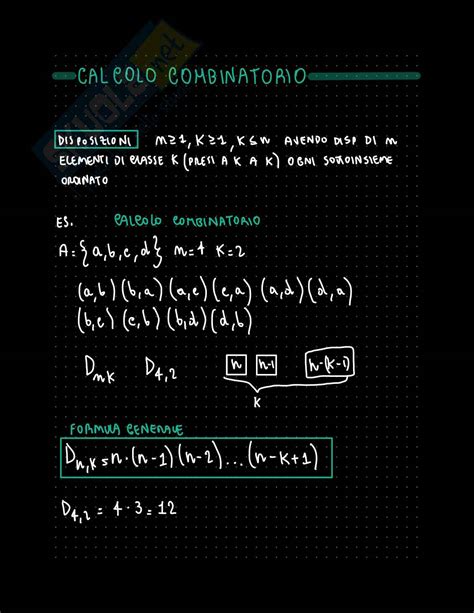 CALCOLO COMBINATORIO
DISPOSIZIONI n≥1, K≥1, K≤n AVENDO DISP DI n
ELEMENTI DI CLASSE K (PRESI A K A K) OGNI SOTTOINSIEME
ORDINATO
ES. CALCOLO COMBINATORIO
A={a,b,c,d} n=4 K=2
(a,b)(b,a)(a,c)(c,a)(a,d)(d,a)
(b,c)(c,b)(b,d)(d,b)
D_nK D_4,2 n n-1 n-(K-1)
K
FORMULA GENERALE
D_n,K = n·(n-1)(n-2)...(n-K+1)
D_4,2 = 4·3=12